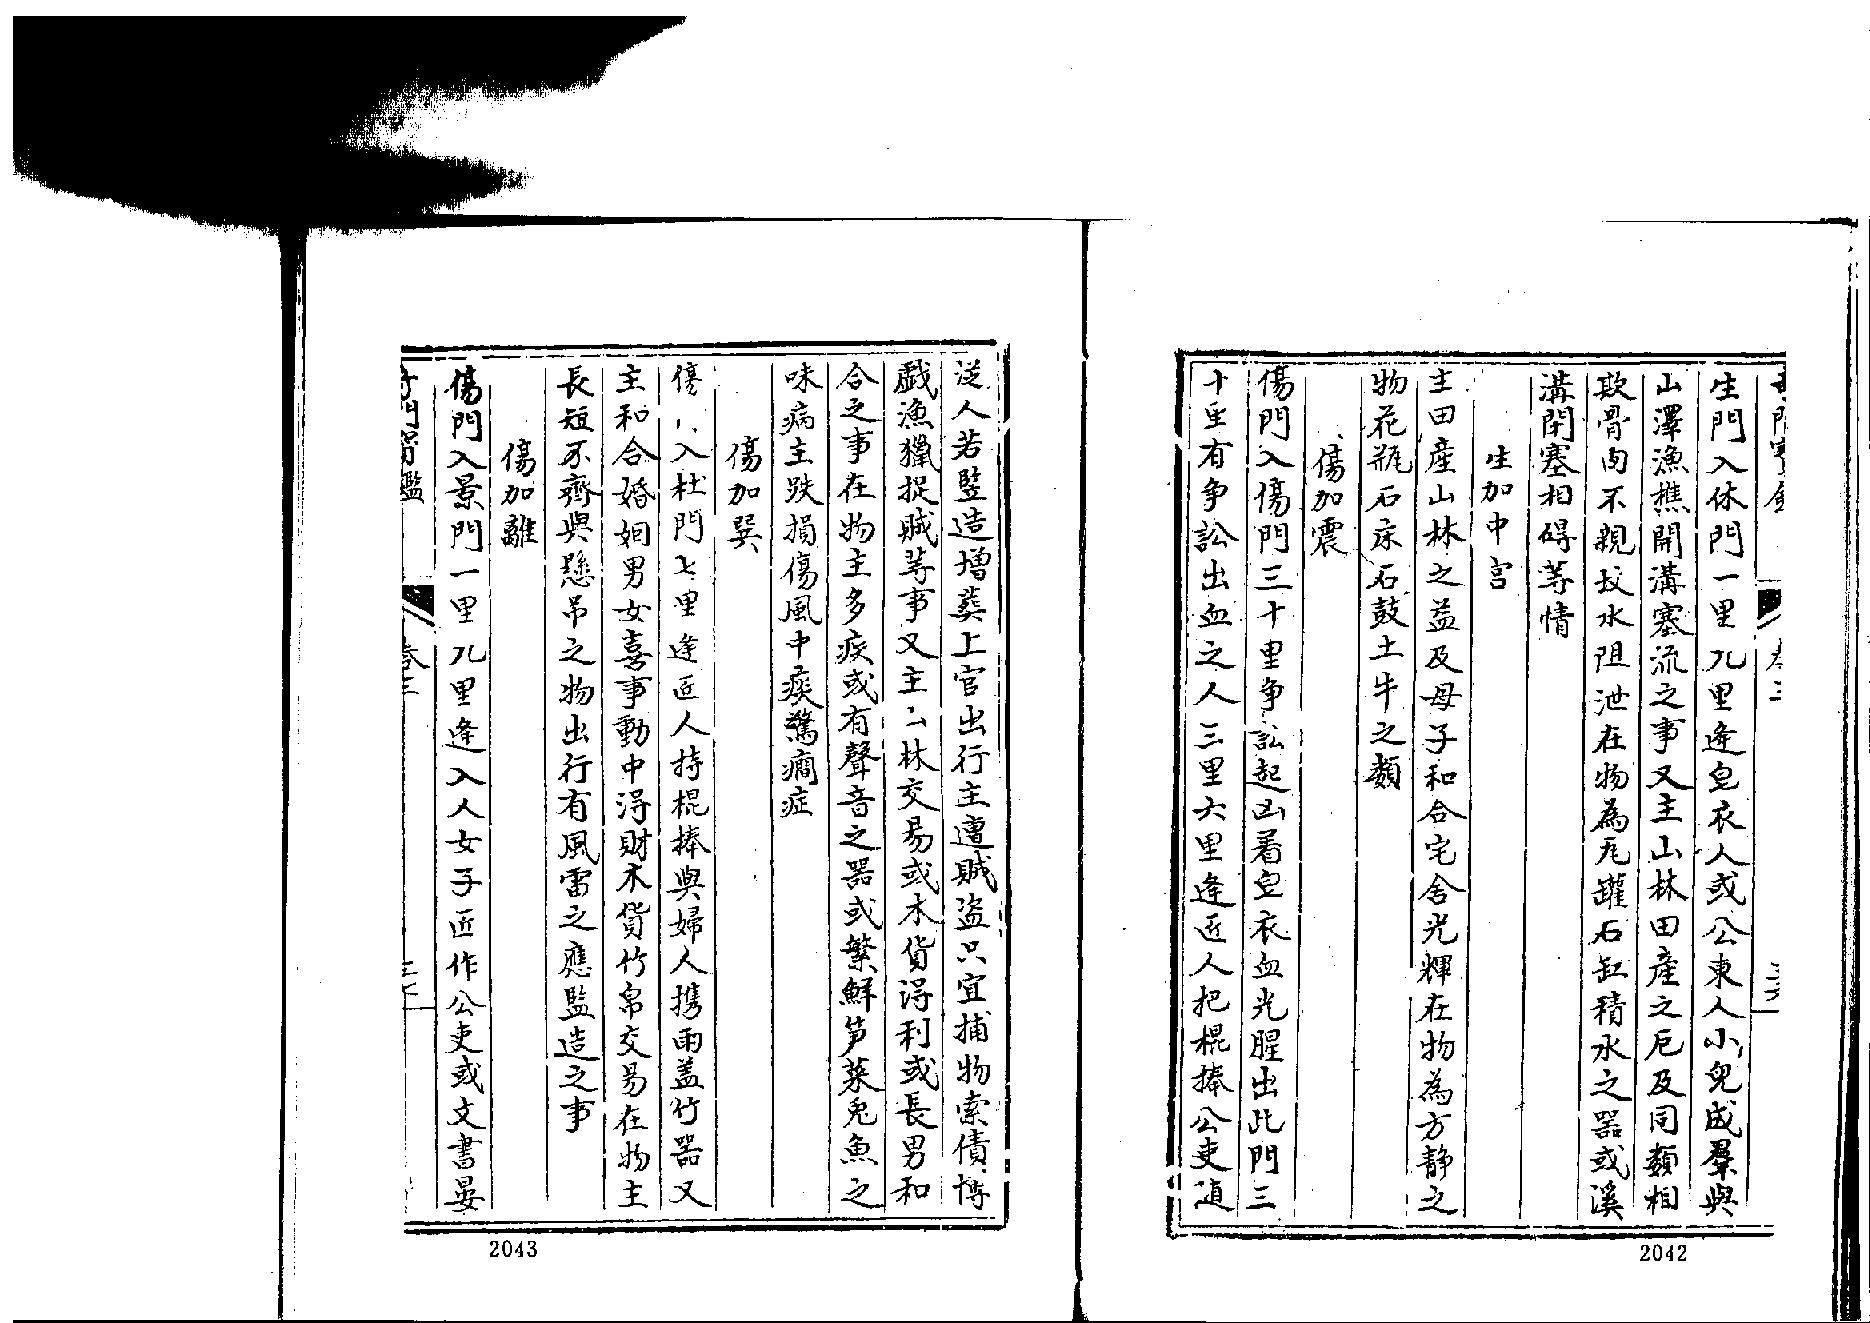 生門入休門一里九里逢皂衣人或公東人小兒成羣與
山澤漁樵開溝塞流之事又主山林田產之厄及同類相
欺骨肉不親坟水阻泄在物為瓦罐石缸積水之器或溪
溝閉塞相碍等情
生加中宮
主田產山林之益及母子和合宅舍光輝在物為方靜之
物花瓶石床石鼓土牛之類
傷加震
傷門入傷門三十里争訟起凶着皂衣血光腥出此門三
十里有争訟出血之人三里六里逢匠人把棍捧公吏道
2042
從人若監造增葬上官出行主遭賊盜只宜捕物索債博
戲漁獵捉賊等事又主林交易或木貨得利或長男和
合之事在物主多疾或有聲音之器或繁鮮笋菜兔魚之
味病主跌損傷風中痰驚癇症
傷加巽
傷入杜門七里逢匠人持棍捧與婦人携雨盖竹器又
主和合婚姻男女喜事動中得財木貨竹帛交易在物主
長短不齊與懸吊之物出行有風雷之應監造之事
傷加離
傷門入景門一里九里逢入人女子匠作公吏或文書晏
奇門寶鑑 卷三
2043